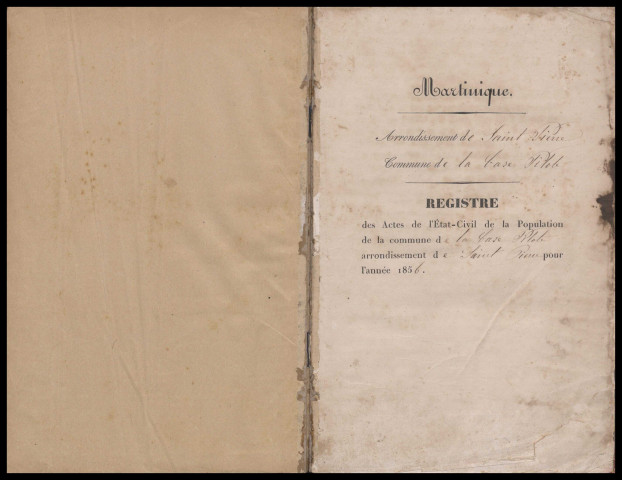 Martinique.
Arrondissement de Saint Pierre
Commune de la Case Pilote
REGISTRE
des Actes de l'État-Civil de la Population
de la commune de la Case Pilote
arrondissement de Saint Pierre pour
l'année 1856.